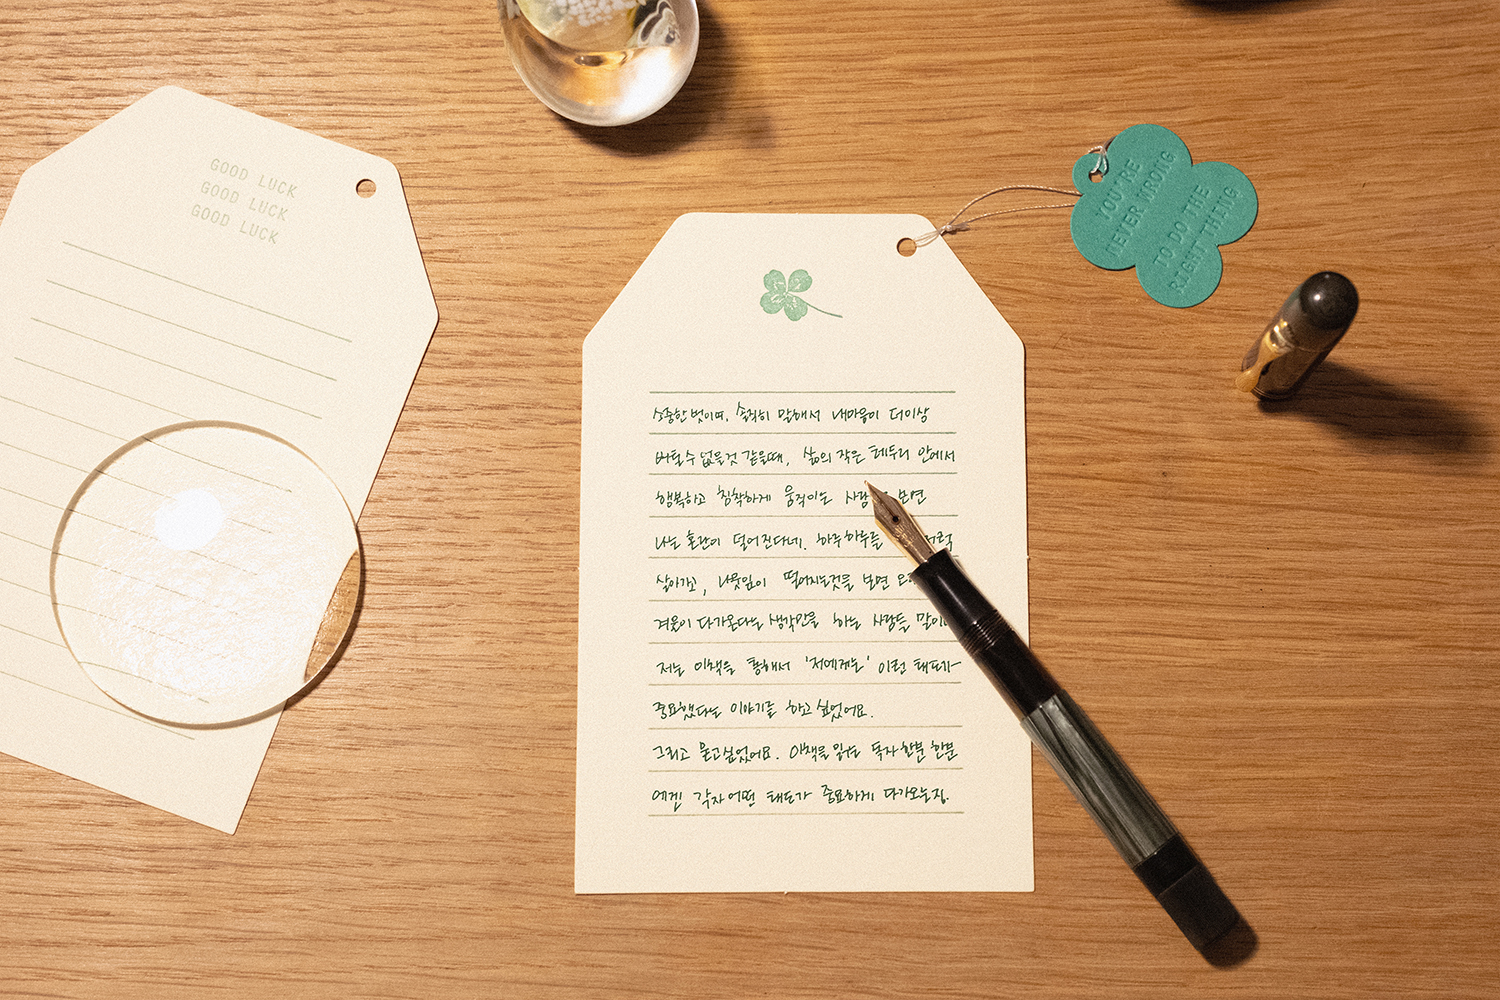 GOOD LUCK
GOOD LUCK
GOOD LUCK
YOU'RE
NEVER WRONG
TO DO THE
RIGHT THING
소중한 벗이여, 솔직히 말해서 내마음이 더이상
버틸 수 없을것 같을때, 삶의 작은 테두리 안에서
행복하고 침착하게 움직이는 보면
나는 혼란이 덜어진다네. 하루하루를
살아가고, 나뭇잎이 떨어지는것을 보면
겨울이 다가온다는 생각만을 하는 사람들
저는 이책을 통해서 '저에게는' 이런 태도가
중요했다는 이야기를 하고 싶었어요.
그리고 묻고싶었어요. 이책을 읽는 독자 한분 한분
에겐 각자 어떤 태도가 중요하게 다가오는지.